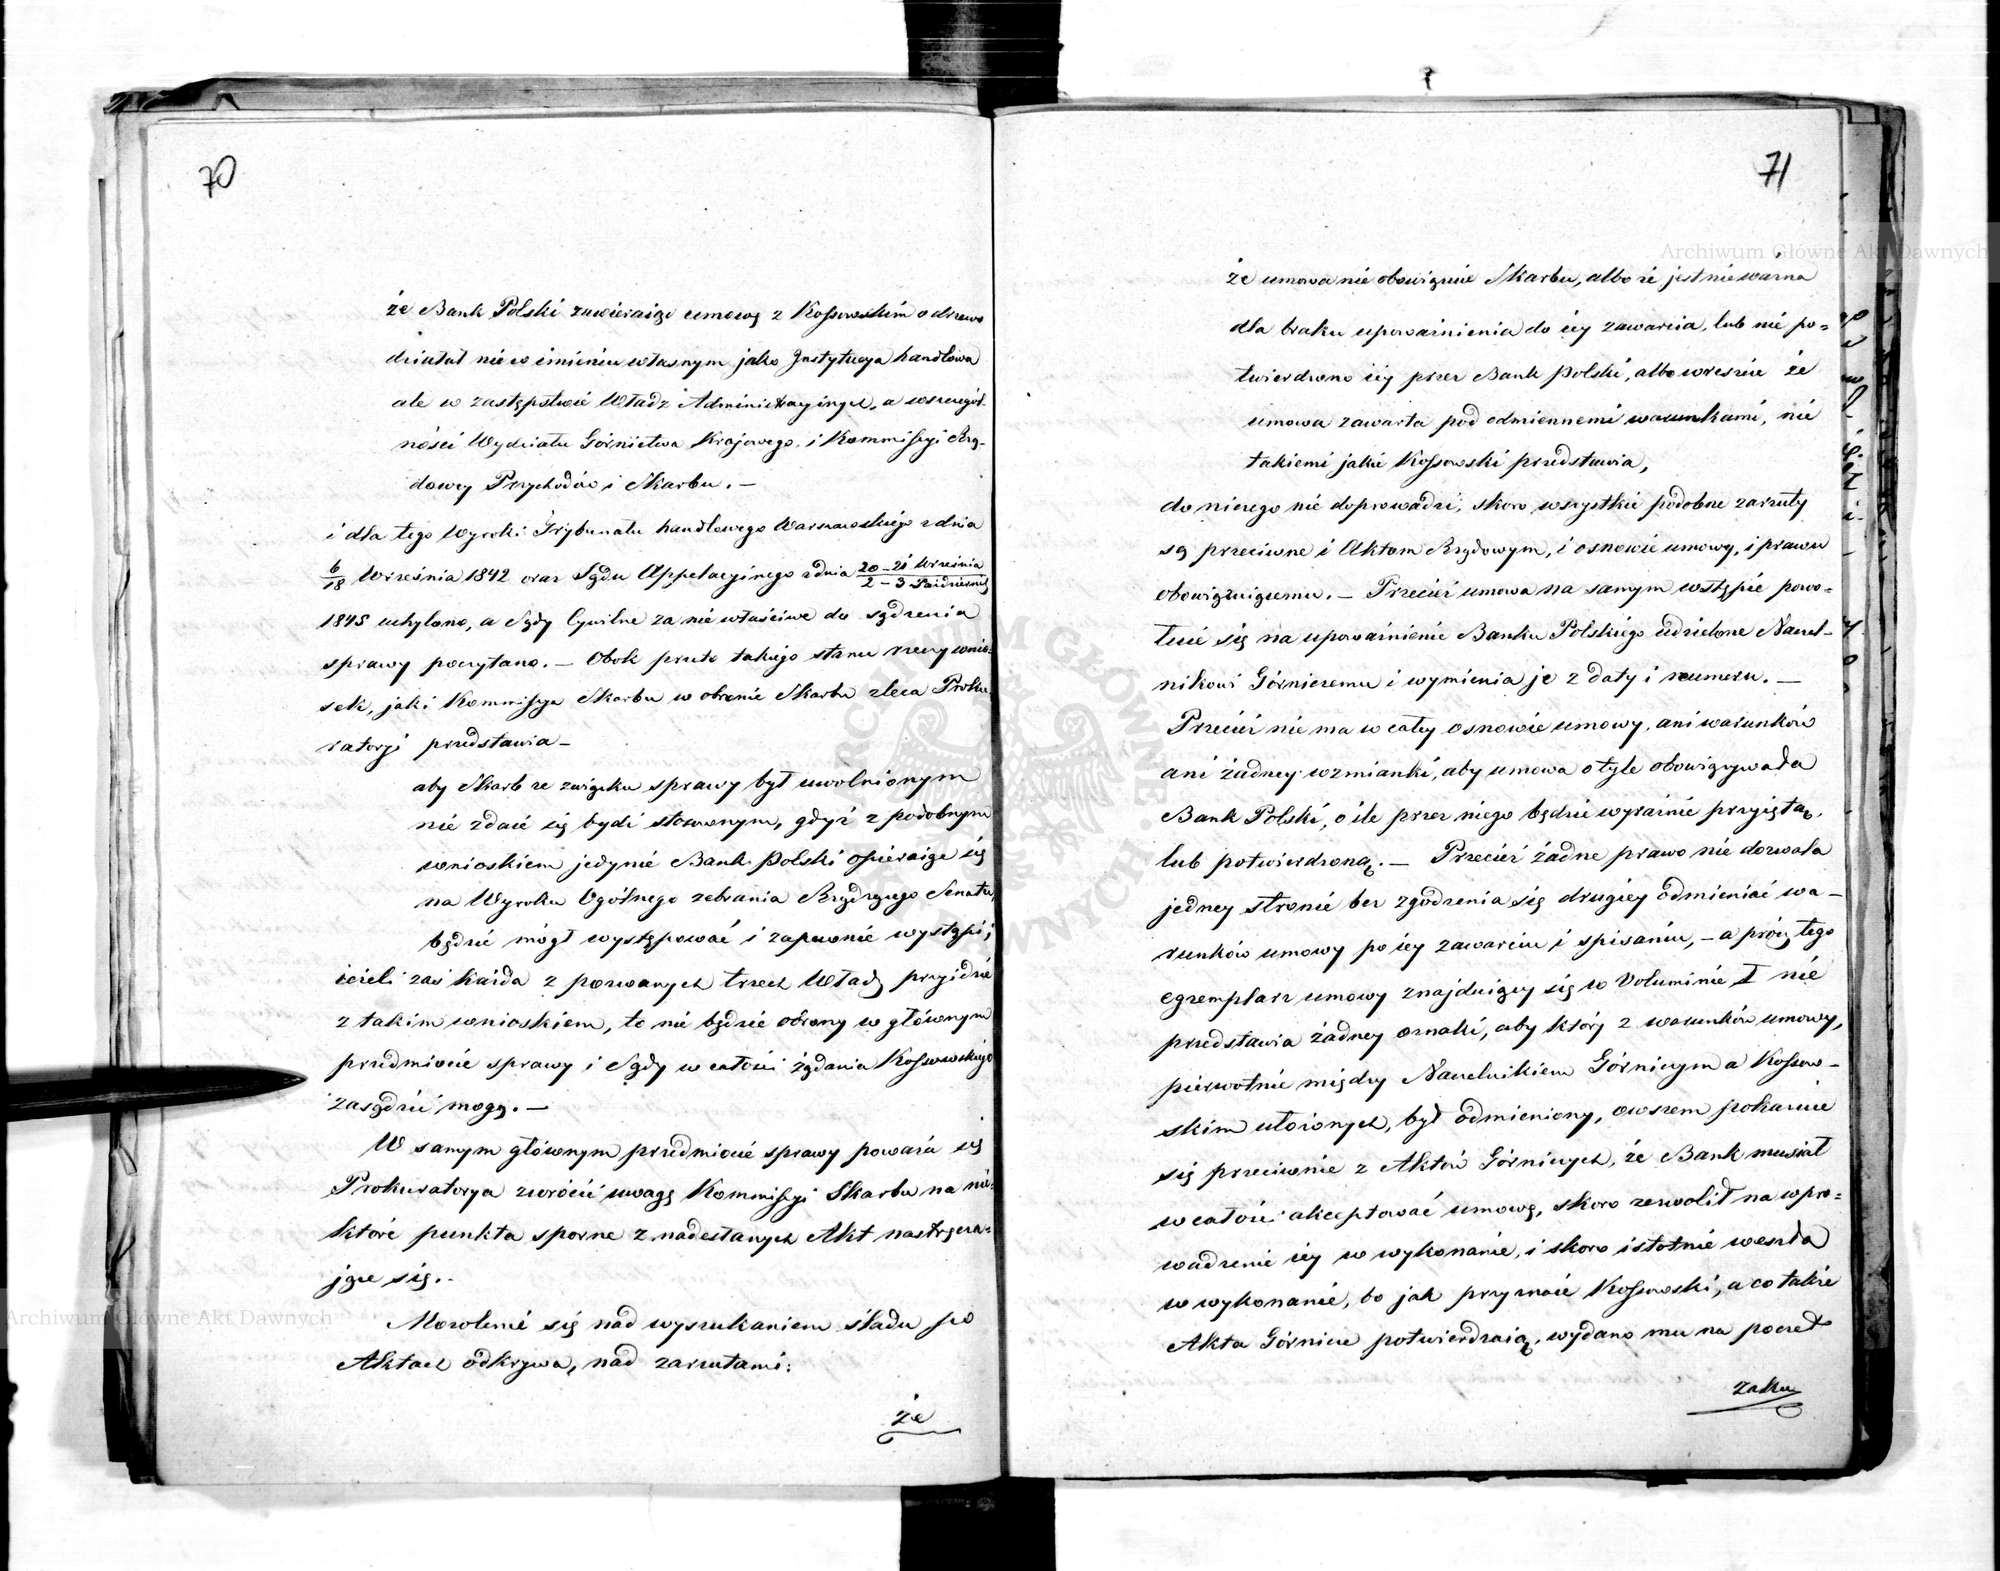 70
że Bank Polski zawieraiąc umowę z Kossowskim o drzewo
działał nie w imieniu własnym jako Instytucya handlowa
ale w zastępstwie Władz Administracyinych, a w szczegól-
ności Wydziału Górnictwa Krajowego, i Kommissyi Rzą-
dowey Przychodów i Skarbu. —
i dla tego Wyroki Trybunału handlowego Warszawskiego z dnia
6/18 Września 1842 oraz Sądu Appelacyinego z dnia 20-21 Września / 2-3 Października
1845 uchylono, a Sądy Cywilne za nie właściwe do sądzenia
sprawy poczytano. — Obok przeto takiego stanu rzeczy wnio-
sek, jaki Kommissya Skarbu w obronie Skarbu zleca Proku-
ratoryi przedstawia —
aby Skarb ze związku sprawy był uwolnionym
nie zdaie się bydź stosownym, gdyż z podobnym
wnioskiem jedynie Bank Polski opieraiąc się
na Wyroku Ogólnego zebrania Rządzącego Senatu,
będzie mógł występować i zapewnie wystąpi;
ieżeli zaś każda z pozwanych trzech Władz przyidzie
z takim wnioskiem, to nie będzie obrony w głównym
przedmiocie sprawy i Sądy w całości żądania Kossowskiego
zasądzić mogą. —
W samym głównym przedmiocie sprawy poważa się
Prokuratorya zwrócić uwagę Kommissyi Skarbu na nie-
które punkta sporne z nadesłanych Akt nastręcza-
jące się.
Mozolenie się nad wyszukaniem śladu po
Aktach odkrywa, nad zarzutami:
że
71
że umowa nie obowiązuie Skarbu, albo że jest nieważna
dla braku upoważnienia do iey zawarcia, lub nie po-
twierdzono iey przez Bank Polski, albo wreszcie że
umowa zawarta pod odmiennemi warunkami, nie
takiemi jakie Kossowski przedstawia,
do niczego nie doprowadzi, skoro wszystkie podobne zarzuty
są przeciwne i Aktom Rządowym, i osnowie umowy, i prawu
obowiązuiącemu. — Przecież umowa na samym wstępie powo-
łuie się na upoważnienie Banku Polskiego udzielone Naczel-
nikowi Górniczemu i wymienia je z daty i numeru. —
Przecież nie ma w całey osnowie umowy, ani warunków
ani żadney wzmianki, aby umowa o tyle obowiązywała
Bank Polski, o ile przez niego będzie wyraźnie przyiętą,
lub potwierdzoną. — Przecież żadne prawo nie dozwala
jedney stronie bez zgodzenia się drugiey odmieniać wa-
runków umowy po iey zawarciu i spisaniu, — a prócz tego
egzemplarz umowy znajduiący się w Voluminie I nie
przedstawia żadney oznaki, aby któryś z warunków umowy,
pierwotnie między Naczelnikiem Górniczym a Kossow-
skim ułożonych, był odmieniony, owszem pokazuie
się przeciwnie z Aktów Górniczych, że Bank musiał
w całości akceptować umowę, skoro zezwolił na wpro-
wadzenie iey w wykonanie, i skoro istotnie weszła
w wykonanie, bo jak przyznaie Kossowski, a co także
Akta Górnicze potwierdzaią, wydano mu na poczet
zaku